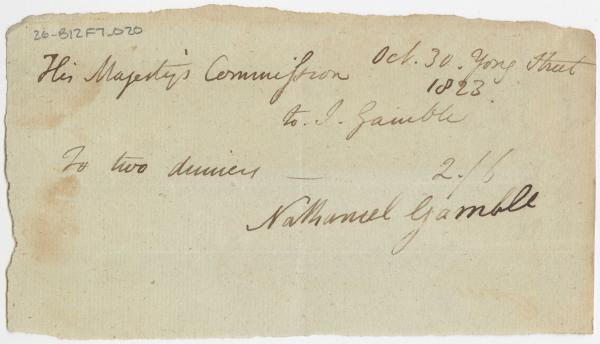 26-B12F7-020
His Majesty's Commission Oct. 30. Yong Street
1823.
to. I. Gamble
To two dinners — 2./6
Nathaniel Gamble